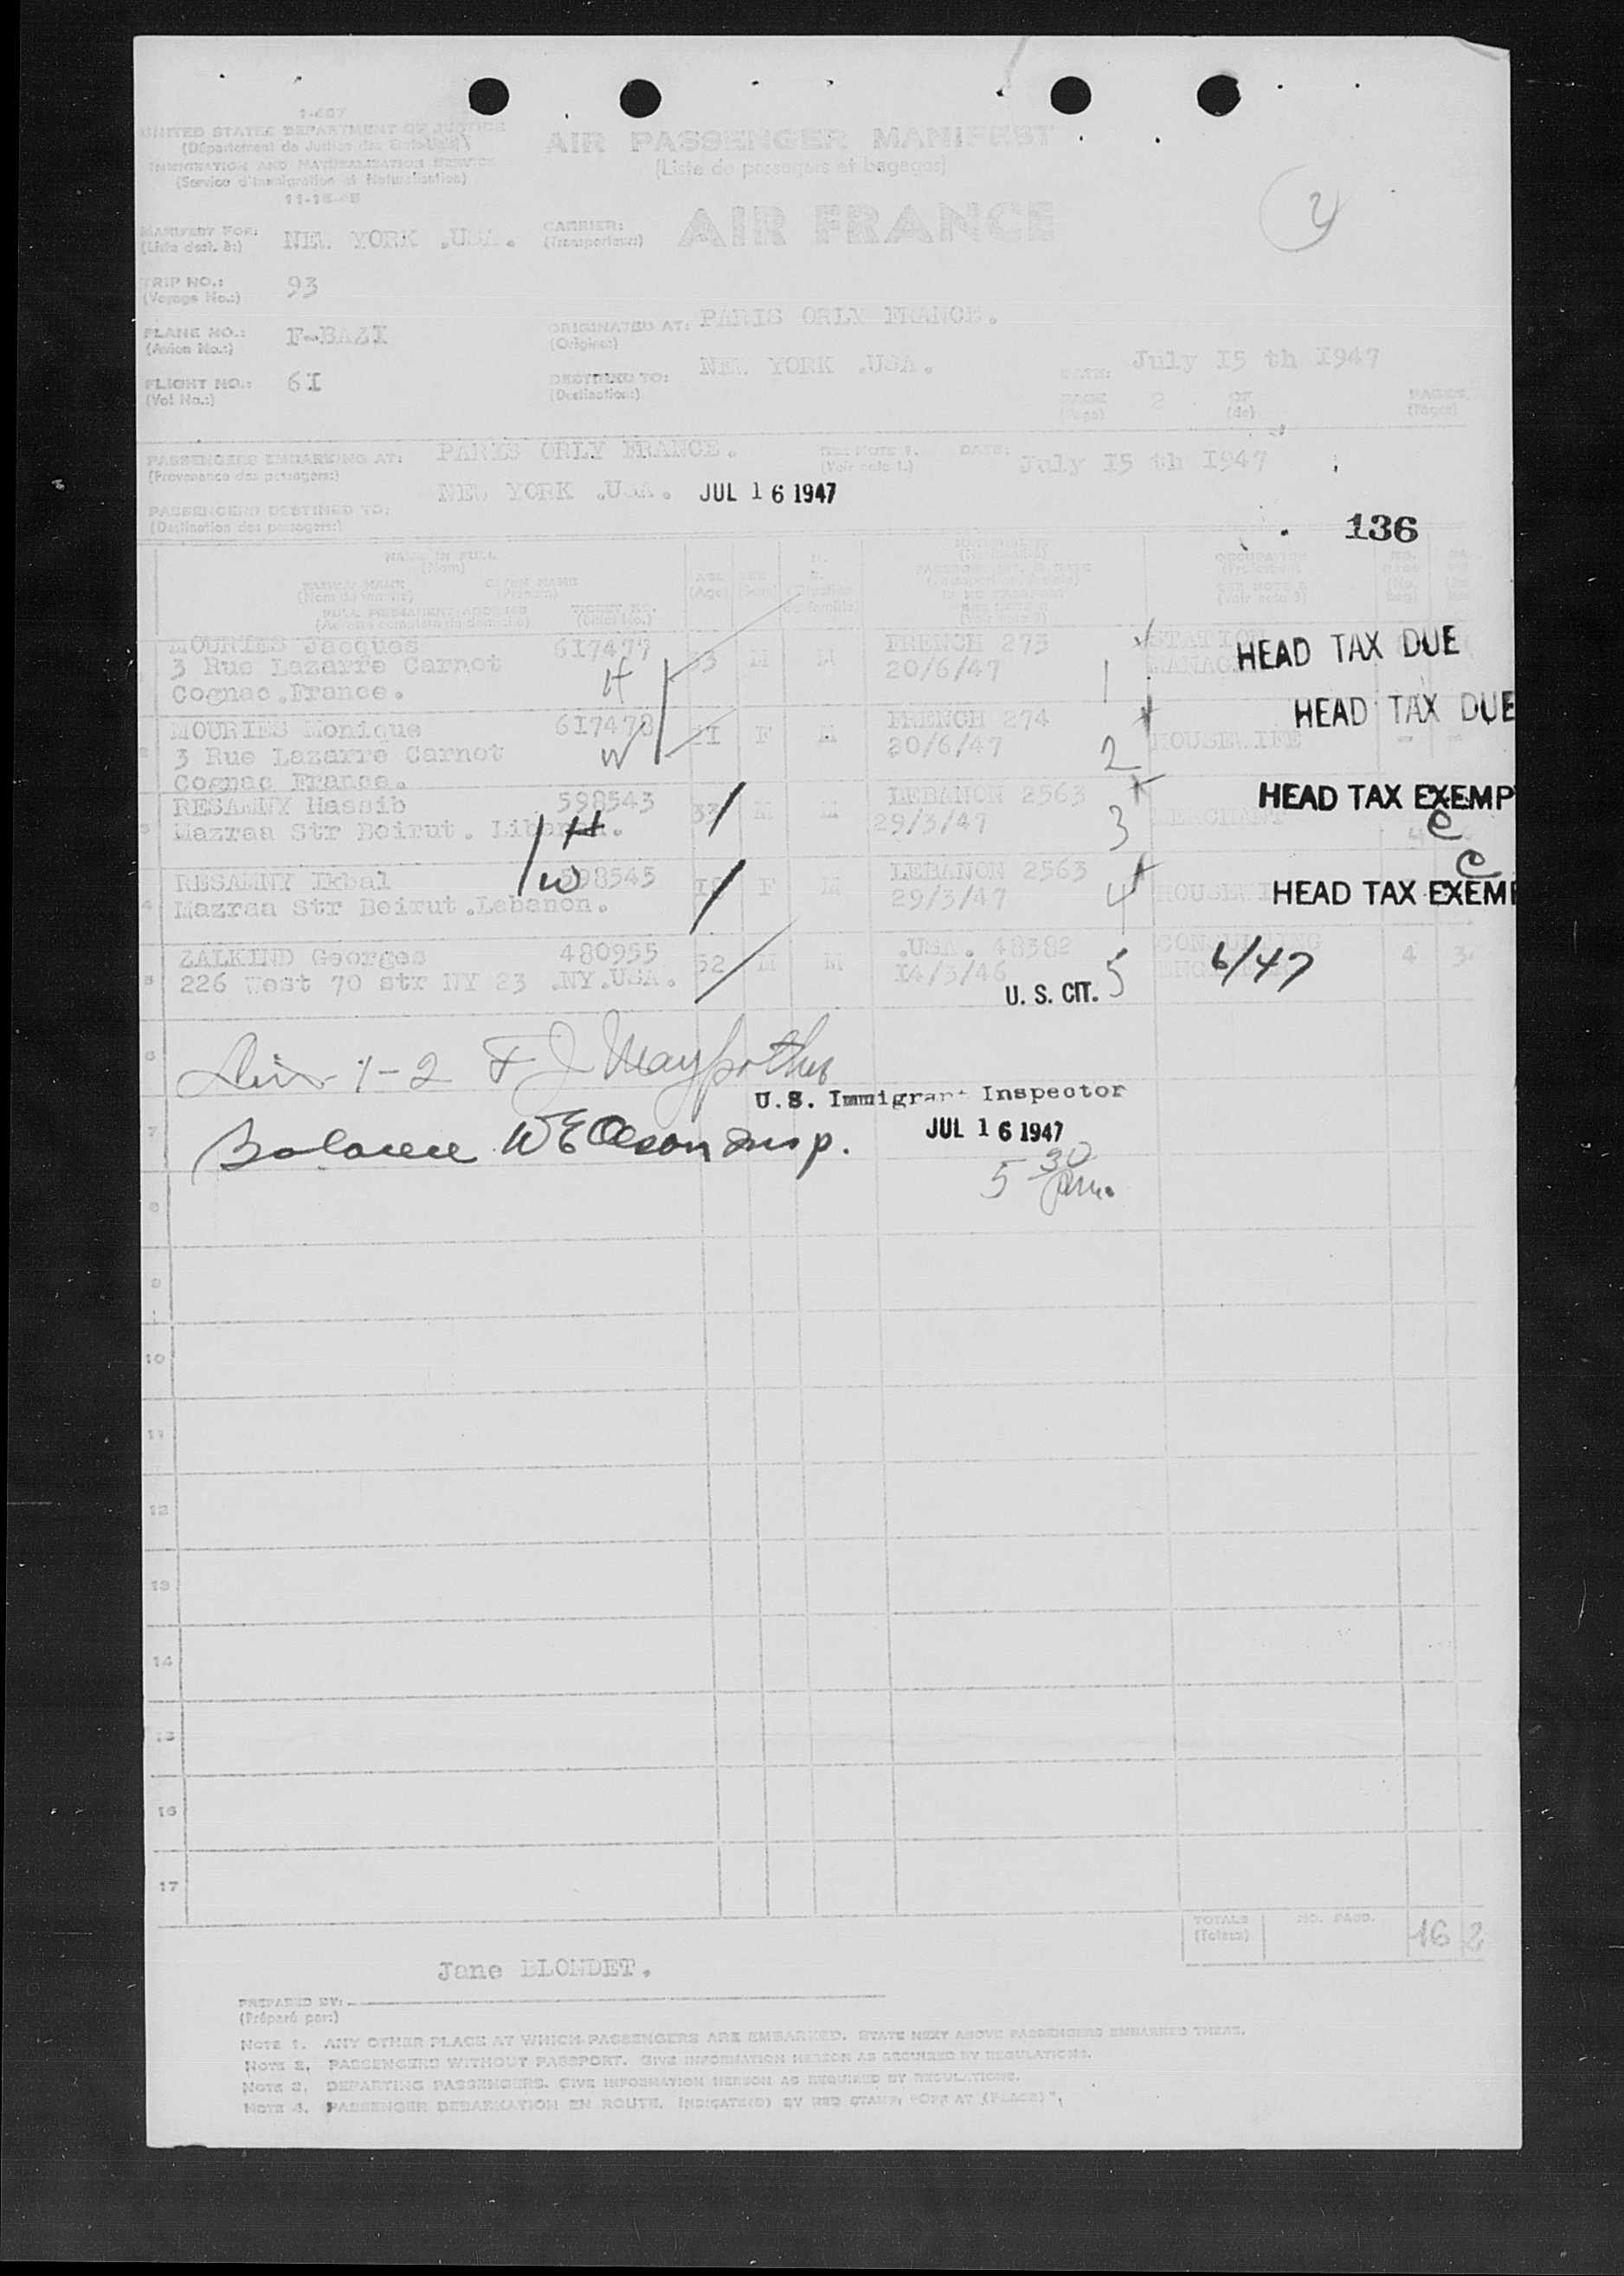 1-467
UNITED STATES DEPARTMENT OF JUSTICE
(Département de Justice des Etats-Unis)
IMMIGRATION AND NATURALIZATION SERVICE
(Service d'Immigration et Naturalisation)
AIR PASSENGER MANIFEST
(Liste de passagers et bagages)
MANIFEST FOR:
(Liste dest. à:)
NEW YORK .USA.
CARRIER:
(Transporteur:)
AIR FRANCE
TRIP NO.:
(Voyage No.:)
93
PLANE NO.:
(Avion No.:)
F-BAZI
ORIGINATED AT:
(Origine:)
PARIS ORLY FRANCE.
FLIGHT NO.:
(Vol No.:)
6I
DESTINED TO:
(Destination:)
NEW YORK .USA.
DATE:
July I5 th I947
PAGE
(Page)
2
OF
(de)
PAGES
(Pages)
PASSENGERS EMBARKING AT:
(Provenance des passagers:)
PARIS ORLY FRANCE.
SEE NOTE 1.
(Voir note 1.)
DATE:
July I5 th I947
PASSENGERS DESTINED TO:
(Destination des passagers:)
NEW YORK .USA.
JUL 16 1947
136
NAME IN FULL
(Nom)
FAMILY NAME
(Nom de famille)
GIVEN NAME
(Prénom)
FULL PERMANENT ADDRESS
(Adresse complète de domicile)
TICKET NO.
(Billet No.)
AGE
(Age)
SEX
(Sexe)
OCCUPATION
(Profession)
SEE NOTE 3
(Voir note 3)
MOURIES Jacques 6I7477 M M FRENCH 273 1 STATION HEAD TAX DUE
3 Rue Lazarre Carnot H 20/6/47
Cognac .France.
MOURIES Monique 6I7478 F M FRENCH 274 2 HOUSEWIFE HEAD TAX DUE
3 Rue Lazarre Carnot W 20/6/47
Cognac France.
RESAMNY Hassib 598543 33 M M LEBANON 2563 3 MERCHANT HEAD TAX EXEMP
Mazraa Str Beirut. H 29/3/47 C
RESAMNY Ikbal 598545 F M LEBANON 2563 4 C
Mazraa Str Beirut .Lebanon. W 29/3/47 HEAD TAX EXEM
ZALKIND Georges 480955 52 M M .USA. 48382 5 CONSULTING 4 3
226 West 70 str NY 23 .NY.USA. I4/3/46 6/47
U. S. CIT.
1-2 F J
U.S. Immigrant Inspector
Balance W E Olson Insp.
JUL 16 1947
5 30 pm.
6
7
8
9
10
11
12
13
14
15
16
17
TOTALS
(Totaux)
NO. PASS.
16 2
Jane BLONDET.
PREPARED BY:
(Préparé par:)
NOTE 1. ANY OTHER PLACE AT WHICH PASSENGERS ARE EMBARKED. STATE NEXT ABOVE PASSENGERS EMBARKED THERE.
NOTE 2. PASSENGERS WITHOUT PASSPORT. GIVE INFORMATION HEREON AS REQUIRED BY REGULATIONS.
NOTE 3. DEPARTING PASSENGERS. GIVE INFORMATION HEREON AS REQUIRED BY REGULATIONS.
NOTE 4. PASSENGER DEBARKATION EN ROUTE. INDICATE(D) BY RED STAMP, "OFF AT (PLACE)",